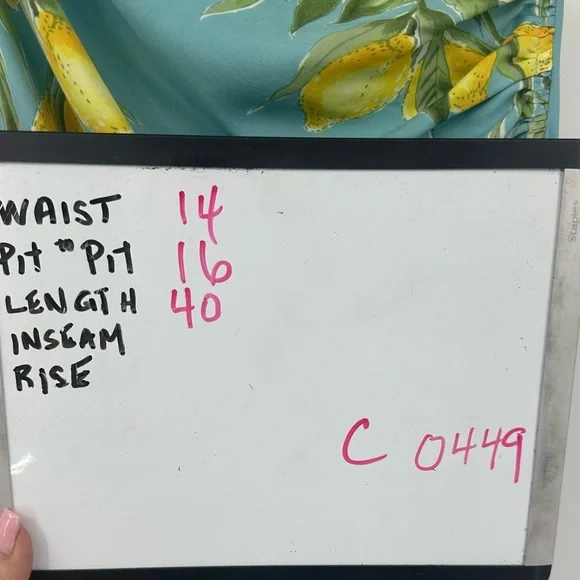 WAIST 14
Pit to Pit 16
LENGTH 40
INSEAM
RISE
C 0449
Staples